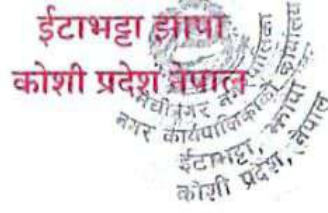 ईटाभट्टा झापा
कोशी प्रदेश नेपाल
मेचीनगर नगरपालिका
नगर कार्यपालिकाको कार्यालय
ईटाभट्टा, झापा
कोशी प्रदेश, नेपाल